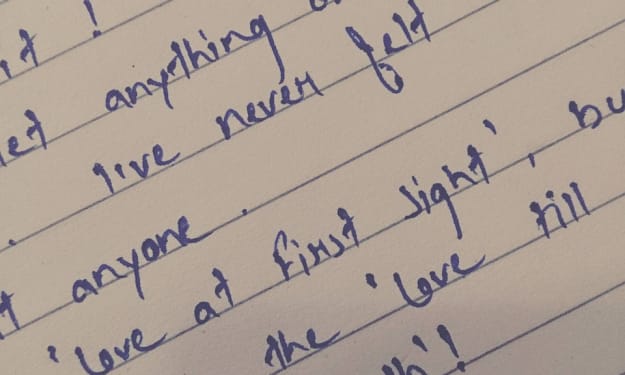 it !
let anything
. I've never felt
t anyone .
'love at first sight', bu
the 'love till
th'!